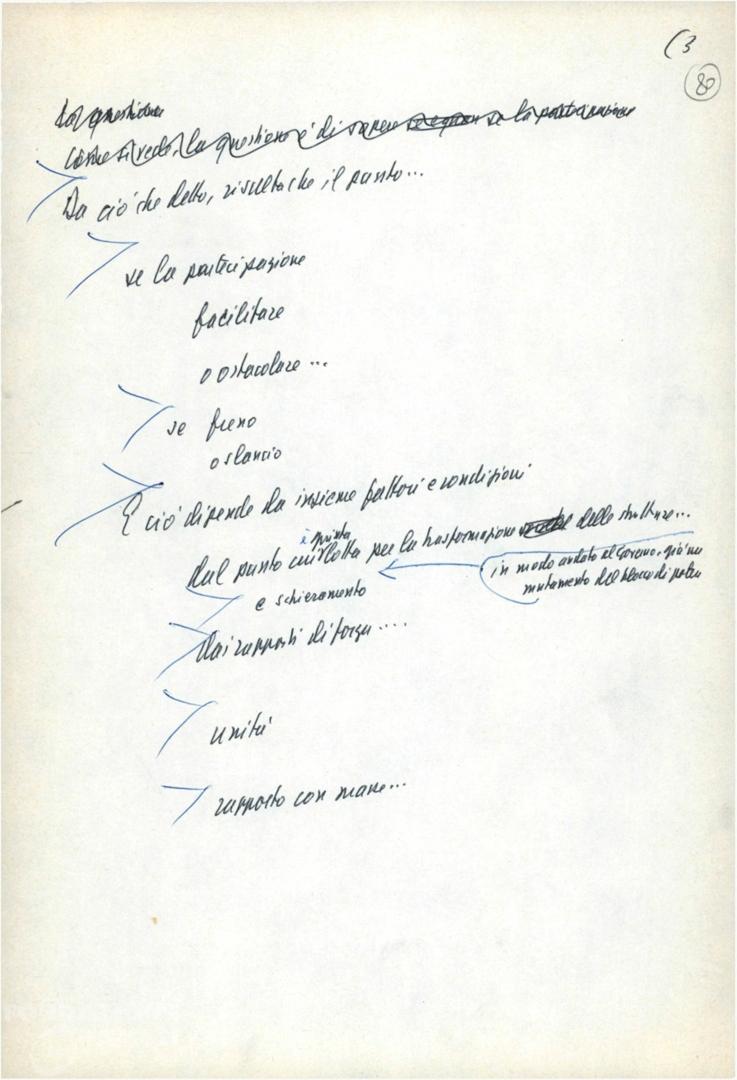 (3
80
La questione
Come si vede, la questione è di sapere se la partecipazione
Da ciò che detto, risulta che il punto...
se la partecipazione
facilitare
o ostacolare...
se freno
o slancio
E ciò dipende da insieme fattori e condizioni
è giunta
dal punto cui lotta per la trasformazione delle strutture...
in modo andata al governo, già un
mutamento del blocco di potere
e schieramento
dai rapporti di forza....
unità
rapporto con masse...